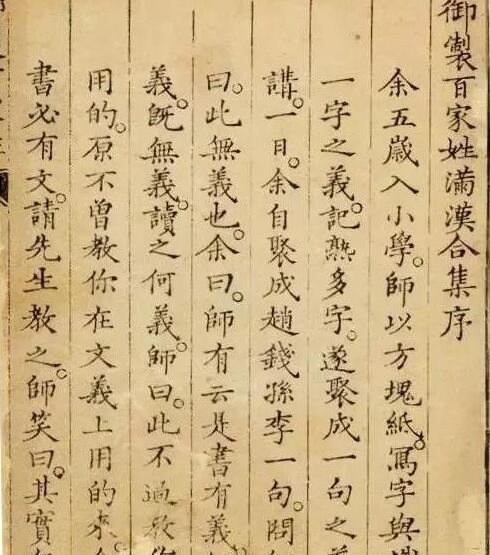 御製百家姓滿漢合集序
余五歲入小學。師以方塊紙。冩字與
一字之義。記熟多字。遂聚成一句之義
講。一日。余自聚成趙錢孫李一句。問
曰。此無義也。余曰。師有云是書有義
義。既無義。讀之何義。師曰。此不過教
用的。原不曾教你在文義上用的來。
書必有文。請先生教之。師笑曰。其實